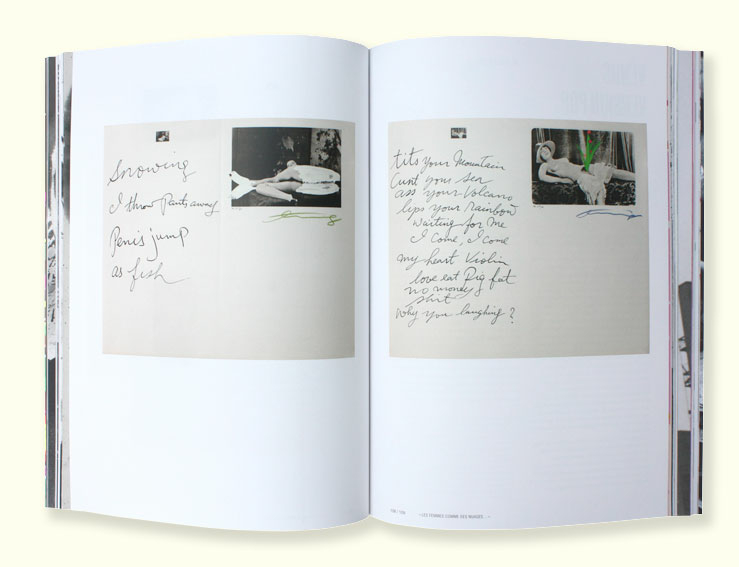 Snowing
I throw Pants away
Penis jump
as fish
tits your Mountain
Cunt your sea
ass your Volcano
lips your rainbow
waiting for me
I come, I come
my heart Violin
love eat Pig fat
no money
shit
why you laughing?
« LES FEMMES COMME DES MARÉES... »